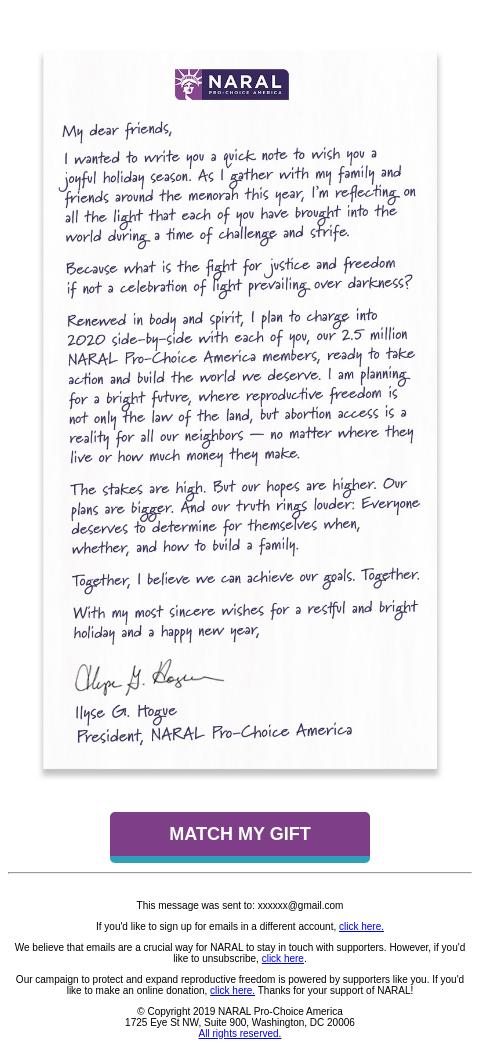 NARAL
PRO-CHOICE AMERICA
My dear friends,
I wanted to write you a quick note to wish you a
joyful holiday season. As I gather with my family and
friends around the menorah this year, I'm reflecting on
all the light that each of you have brought into the
world during a time of challenge and strife.
Because what is the fight for justice and freedom
if not a celebration of light prevailing over darkness?
Renewed in body and spirit, I plan to charge into
2020 side-by-side with each of you, our 2.5 million
NARAL Pro-Choice America members, ready to take
action and build the world we deserve. I am planning
for a bright future, where reproductive freedom is
not only the law of the land, but abortion access is a
reality for all our neighbors — no matter where they
live or how much money they make.
The stakes are high. But our hopes are higher. Our
plans are bigger. And our truth rings louder: Everyone
deserves to determine for themselves when,
whether, and how to build a family.
Together, I believe we can achieve our goals. Together.
With my most sincere wishes for a restful and bright
holiday and a happy new year,
Ilyse G. Hogue
Ilyse G. Hogue
President, NARAL Pro-Choice America
MATCH MY GIFT
This message was sent to: xxxxxx@gmail.com
If you'd like to sign up for emails in a different account, click here.
We believe that emails are a crucial way for NARAL to stay in touch with supporters. However, if you'd
like to unsubscribe, click here.
Our campaign to protect and expand reproductive freedom is powered by supporters like you. If you'd
like to make an online donation, click here. Thanks for your support of NARAL!
© Copyright 2019 NARAL Pro-Choice America
1725 Eye St NW, Suite 900, Washington, DC 20006
All rights reserved.